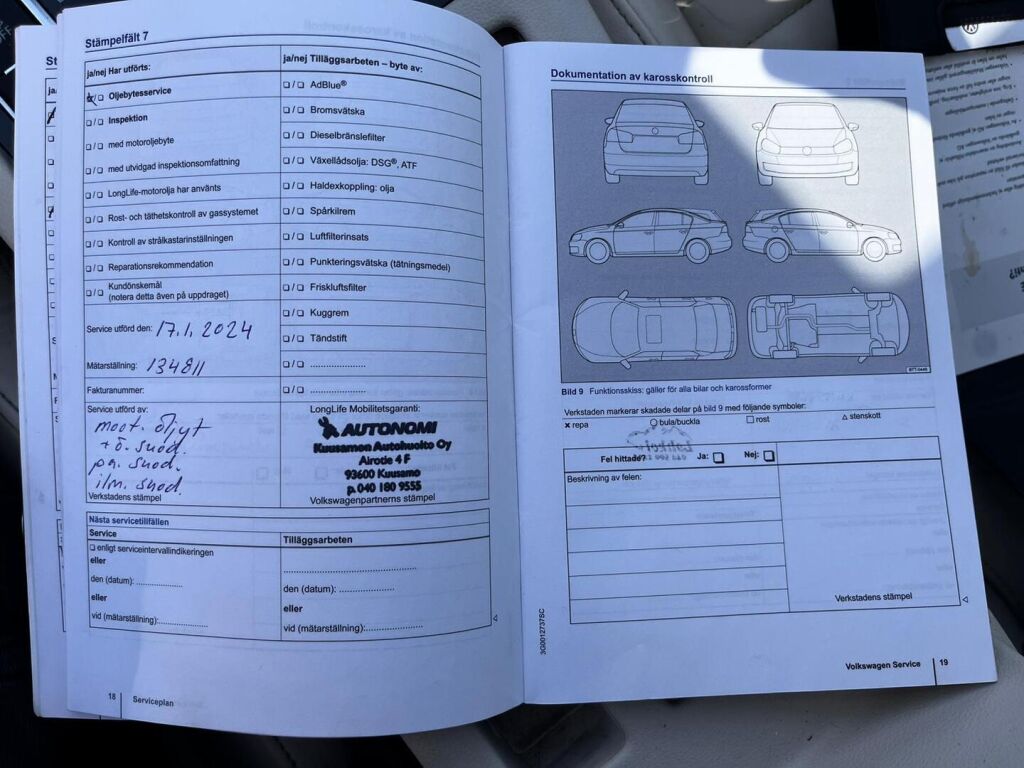 Stämpelfält 7
ja/nej Har utförts:
Oljebytesservice
/ Inspektion
/ med motoroljebyte
/ med utvidgad inspektionsomfattning
/ LongLife-motorolja har använts
/ Rost- och täthetskontroll av gassystemet
/ Kontroll av strålkastarinställningen
/ Reparationsrekommendation
/ Kundönskemål
(notera detta även på uppdraget)
Service utförd den: 17.1.2024
Mätarställning: 134811
Fakturanummer:
Service utförd av:
moot. öljyt
+ ö. suod.
pa. suod.
ilm. suod.
Verkstadens stämpel
ja/nej Tilläggsarbeten – byte av:
/ AdBlue®
/ Bromsvätska
/ Dieselbränslefilter
/ Växellådsolja: DSG®, ATF
/ Haldexkoppling: olja
/ Spårkilrem
/ Luftfilterinsats
/ Punkteringsvätska (tätningsmedel)
/ Friskluftsfilter
/ Kuggrem
/ Tändstift
/ .....................
/ .....................
LongLife Mobilitetsgaranti:
AUTONOMI
Kuusamon Autohuolto Oy
Airotie 4 F
93600 Kuusamo
p.040 180 9555
Volkswagenpartnerns stämpel
Nästa servicetillfällen
Service
enligt serviceintervallindikeringen
eller
den (datum): .................
eller
vid (mätarställning):..................
Tilläggsarbeten
..................................................
den (datum): .....................
eller
vid (mätarställning):.....................
18 Serviceplan
Dokumentation av karosskontroll
B7T-0446
Bild 9 Funktionsskiss: gäller för alla bilar och karossformer
Verkstaden markerar skadade delar på bild 9 med följande symboler:
× repa ○ bula/buckla □ rost △ stenskott
Fel hittade? Ja: Nej:
Beskrivning av felen:
Verkstadens stämpel
3G0012737SC
Volkswagen Service 19